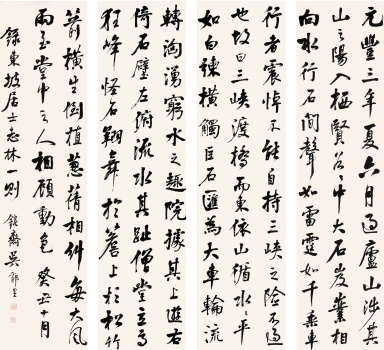 元豐三年夏六月過廬山涉其
山之陽入栖賢谷谷中大石岌嶪相
向水行石間聲如雷霆如千乘車
行者震悼不能自持三峽之險不過
也故曰三峽渡橋而東依山循水水平
如白練橫觸巨石匯為大車輪流
轉洶湧窮水之趣院據其上游右
倚石壁左俯流水其趾僧堂立焉
狂峰怪石翔舞於簷上杉松竹
箭橫生倒植蔥蒨相糾每大風
雨至堂中之人相顧動色 癸丑十月
錄東坡居士志林一則 鈍齋吳郁生